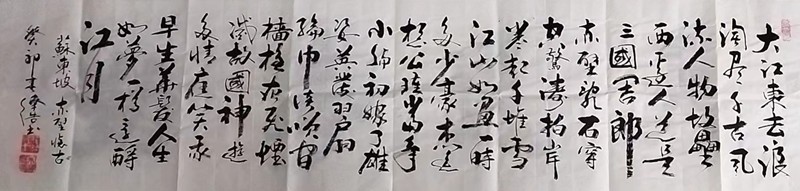 大江東去浪
淘盡千古風
流人物故壘
西邊人道是
三國周郎
赤壁亂石穿
空驚濤拍岸
卷起千堆雪
江山如畫一時
多少豪杰遙
想公瑾當年
小喬初嫁了雄
姿英發羽扇
綸巾談笑間
檣櫓灰飛煙
滅故國神遊
多情應笑我
早生華髮人生
如夢一樽還酹
江月
蘇東坡 赤壁懷古
癸卯春 書